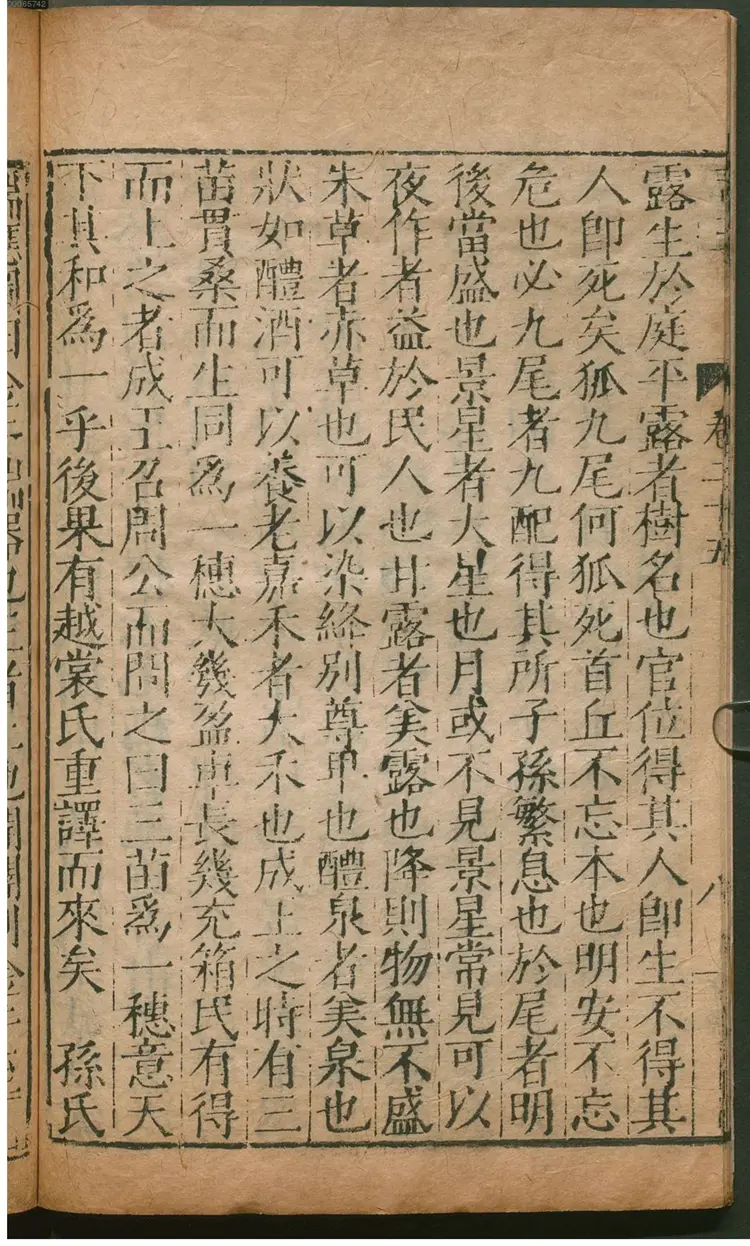 露生於庭平露者樹名也官位得其人卽生不得其
人卽死矣狐九尾何狐死首丘不忘本也明安不忘
危也必九尾者九配得其所子孫繁息也於尾者明
後當盛也景星者大星也月或不見景星常見可以
夜作者益於民人也甘露者美露也降則物無不盛
朱草者赤草也可以染絳別尊卑也醴泉者美泉也
狀如醴酒可以養老嘉禾者大禾也成王之時有三
苗貫桑而生同爲一穗大幾盈車長幾充箱民有得
而上之者成王召周公而問之曰三苗爲一穗意天
下其和爲一乎後果有越裳氏重譯而來矣　孫氏
卷二十五
八